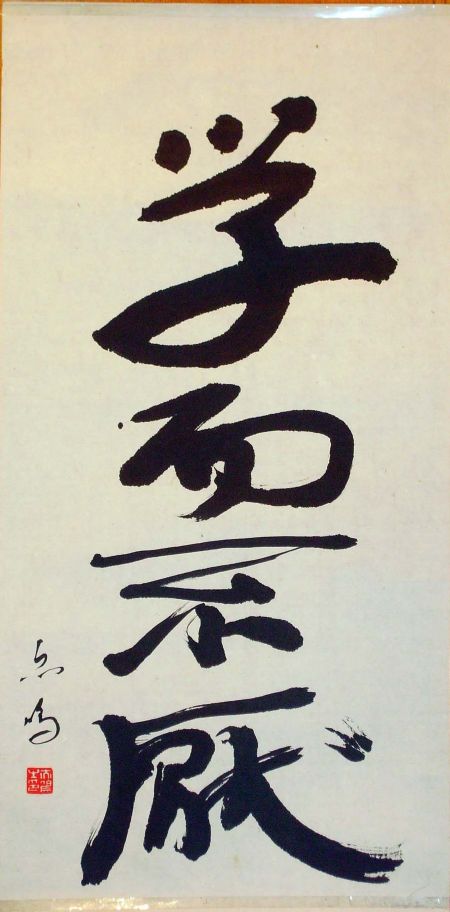 学而不厭